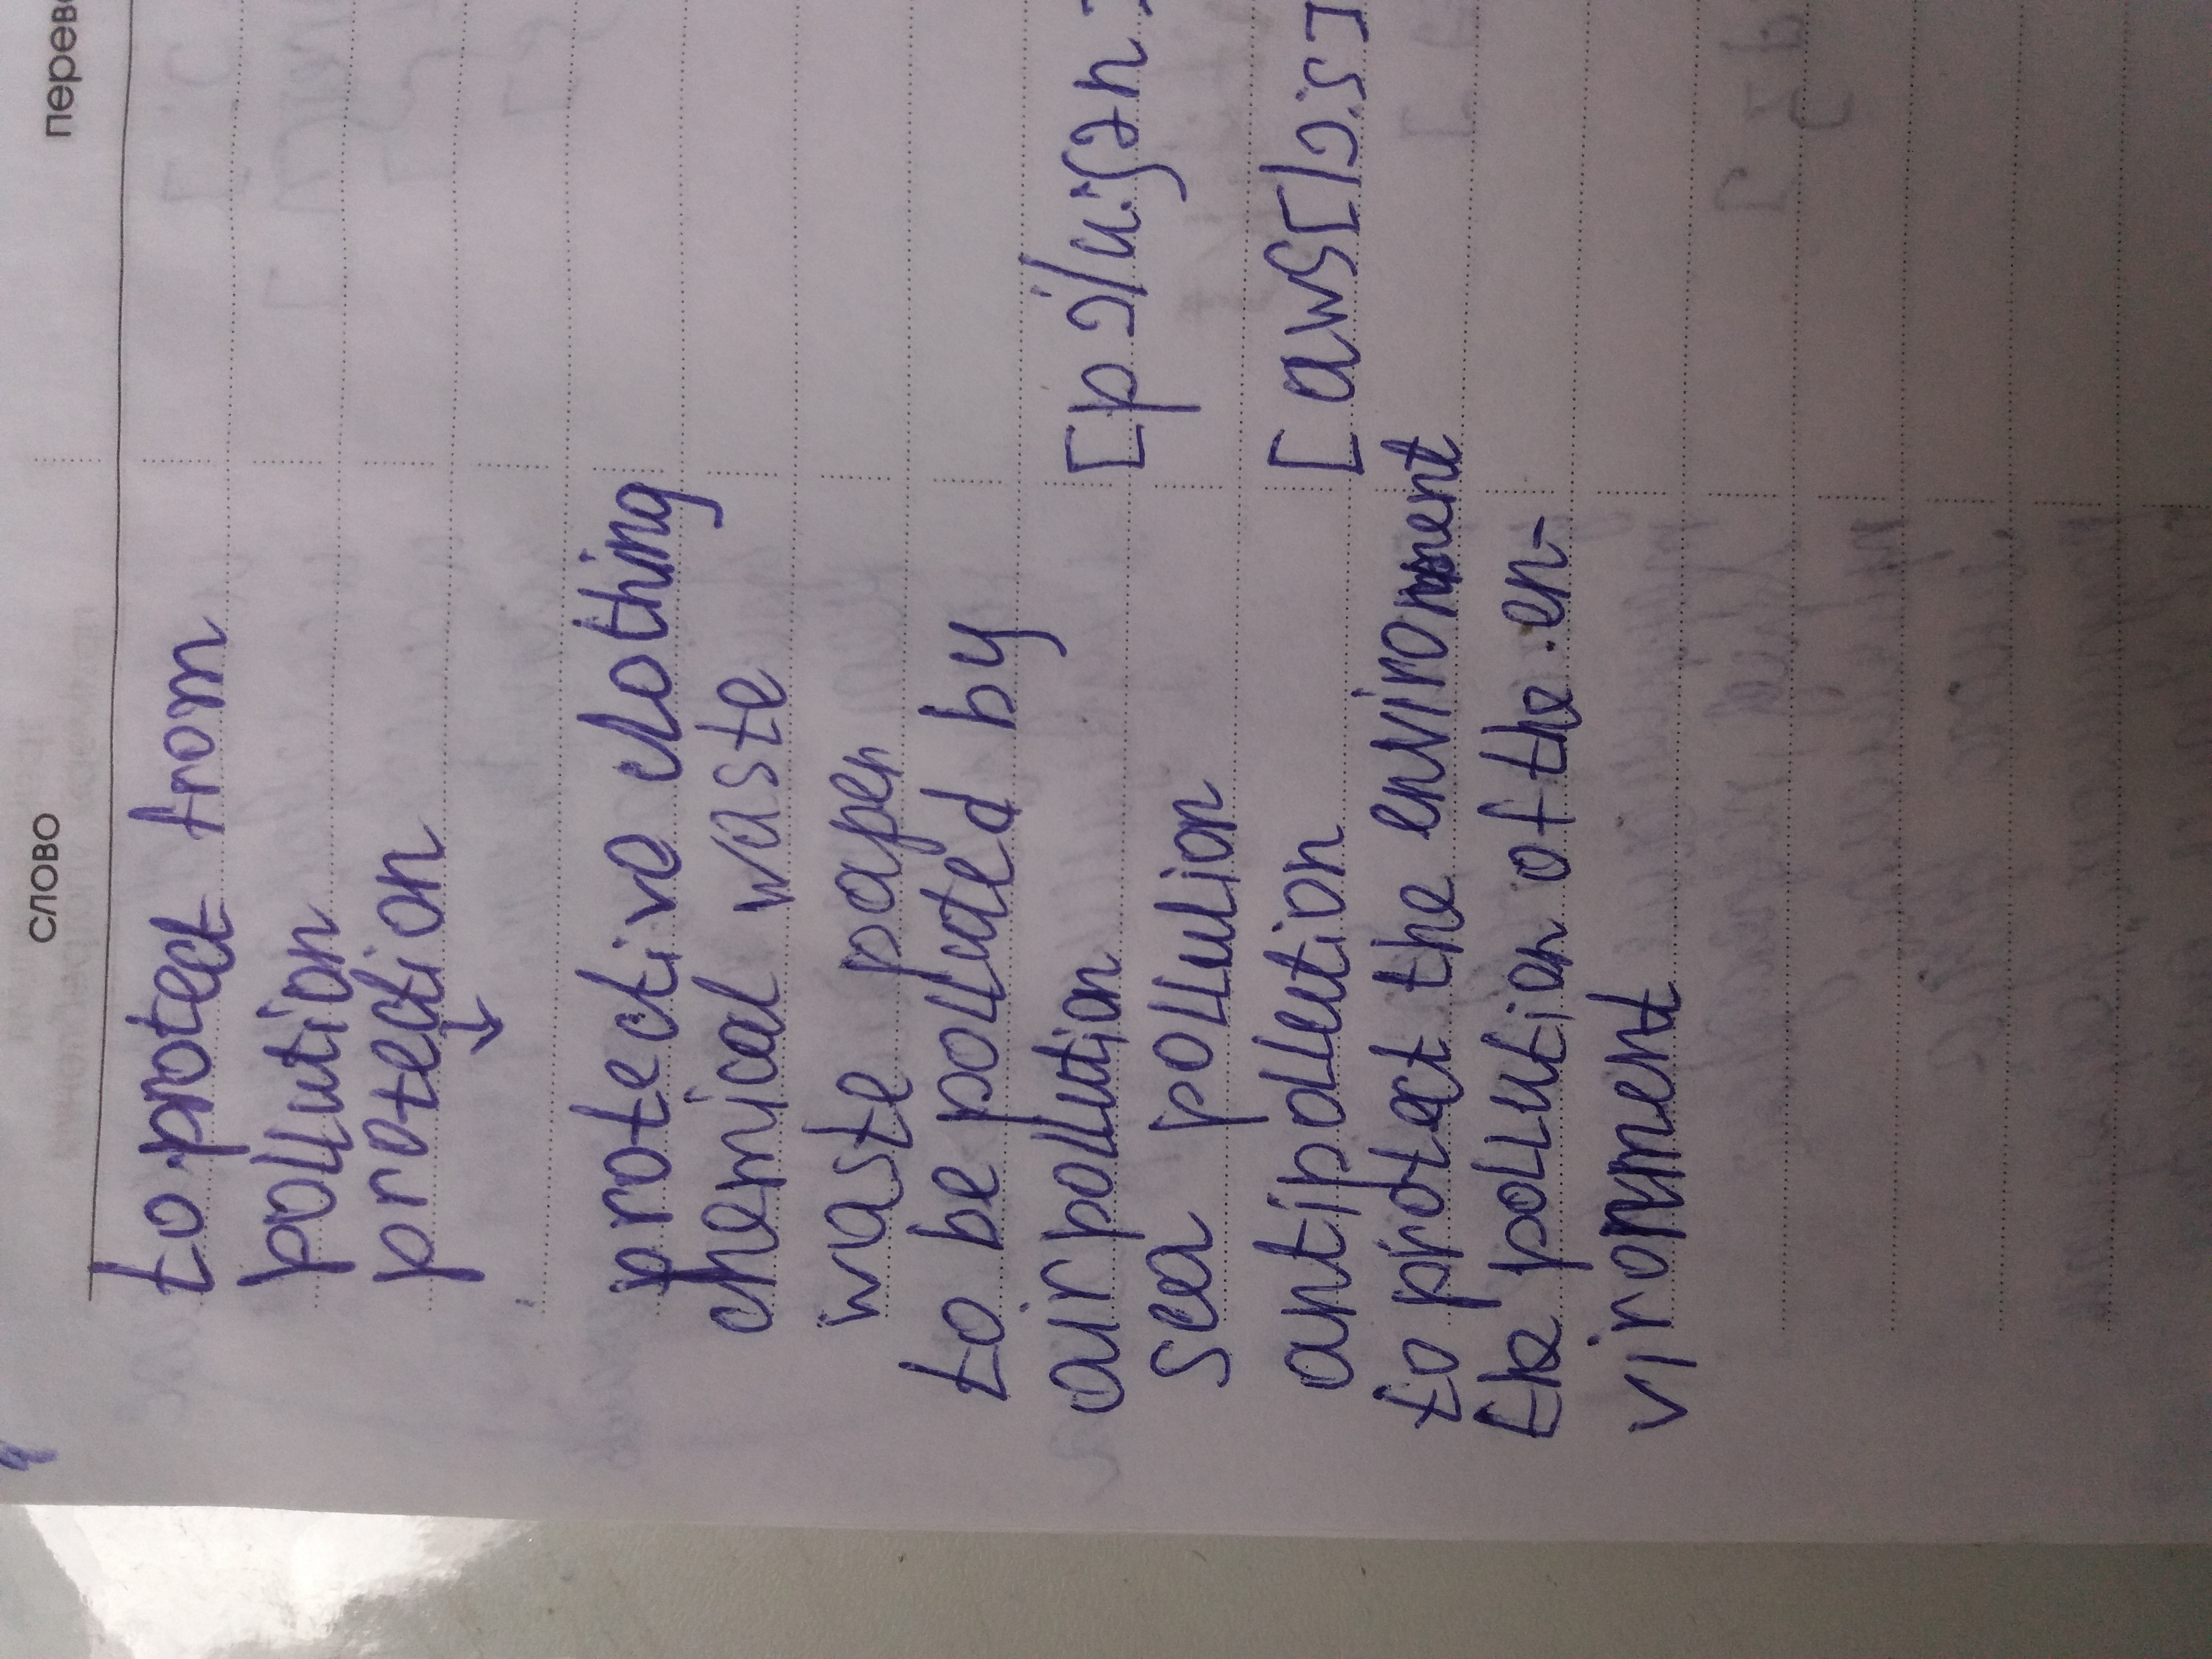 слово перев
to protect from
pollution
protection
↓
protective clothing
chemical waste
waste paper
to be polluted by
air pollution [pɔ́lu:ʃən
sea pollulion
antipollution [
to protect the environment
the pollution of the en-
vironment